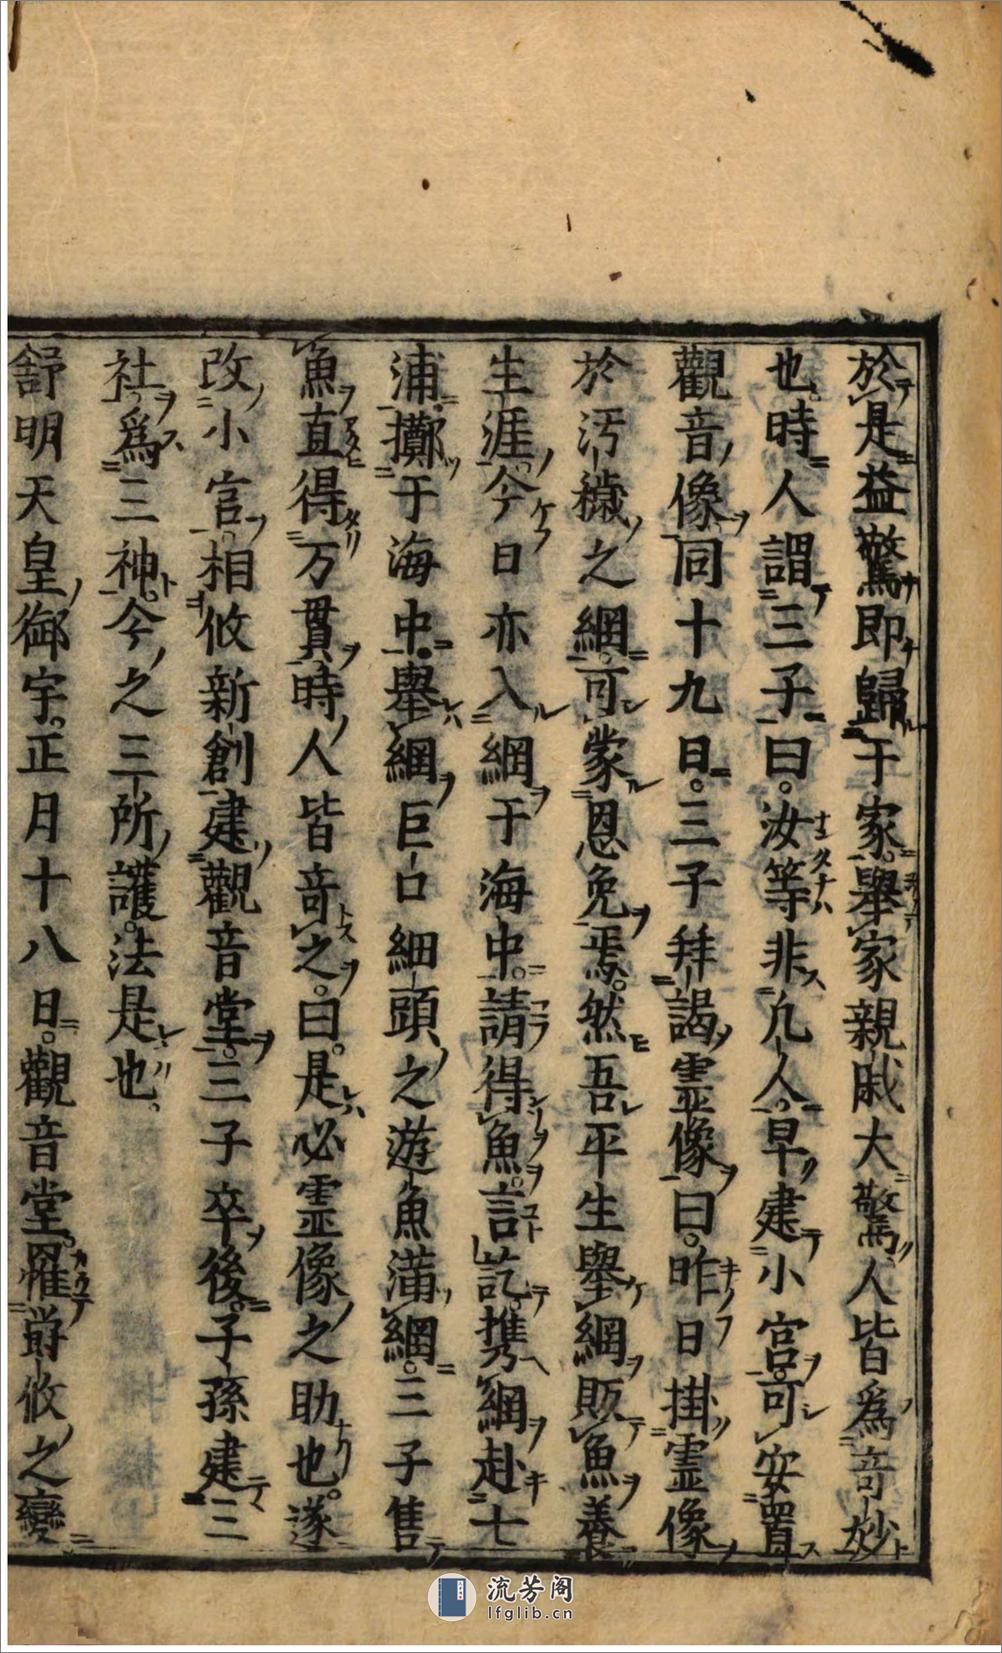 於是益驚即歸于家。舉家親戚大驚人皆爲竒妙
也。時人謂三子曰。汝等非凡人。早建小宮。可安置
觀音像同十九日。三子拜謁霊像曰。昨日掛霊像
於汚穢之網。可蒙恩免焉。然吾平生舉網販魚養
生涯。今日亦入網于海中。請得魚。言訖。携網赴七
浦擲于海中。舉網巨口細頭之遊魚満網。三子售
魚直得万貫。時人皆竒之。曰。是必霊像之助也。遂
改小宮。相攸新創建觀音堂。三子卒後。子孫建三
社爲三神。今之三所護。法是也。
舒明天皇御宇。正月十八日。觀音堂。罹欝攸之變
流芳阁
lfglib.cn